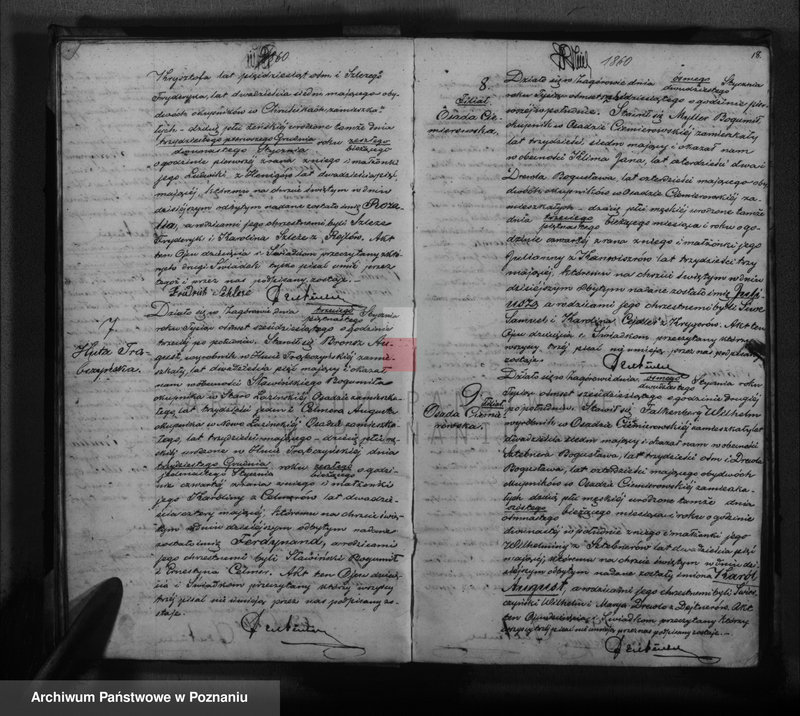 1860
Krysztofa lat pięćdziesiąt ośm i Szlezego
Fryderyka, lat dwadzieścia siedm mającego oby-
dwóch okupników w zamieszka-
łych – dziecię płci żeńskiej urodzone tamże dnia
trzydziestego pierwszego Grudnia roku zeszłego
dwunastego Stycznia bieżącego
o godzinie pierwszej z rana z niego i małżonki
jego Ludwiki z lat dwadzieścia pięć
mającej, któremu na chrzcie świętym w dniu
dzisiejszym odbytym nadane zostało imię Roza-
lia, a rodzicami jego chrzestnemi byli Szleze
Fryderyk i Karolina Szleze z Akt
ten Ojcu dziecięcia i Świadkom przeczytany, z któ-
rych drugi Świadek tylko pisać umie przez
tegoż i przez nas podpisany został. –
7.
Huta Trą-
bczyńska.
Działo się w Zagórowie dnia trzeciego Stycznia
piętnastego
roku tysiąc ośmset sześćdziesiątego o godzinie
trzeciej po południu. Stawił się Bronsz Au-
gust, wyrobnik w Hucie Trąbczyńskiej zamie-
szkały, lat dwadzieścia pięć mający i okazał
nam w obecności Sławińskiego Bogumiła
okupnika w Staro Łazińskiej Osadzie zamieszka-
łego, lat trzydzieści jeden i Celmera Augusta
okupnika w Nowo Łazińskiej Osadzie zamieszka-
łego, lat trzydzieści mającego – dziecię płci mę-
skiej urodzone w Hucie Trąbczyńskiej dnia
trzydziestego Grudnia roku zeszłego
jedenastego Stycznia bieżącego o godzi-
nie czwartej z rana z niego i małżonki
jego Karoliny z Celmerów lat dwadzie-
ścia cztery mającej, któremu na chrzcie świę-
tym w dniu dzisiejszym odbytym nadane
zostało imię Ferdynand, a rodzicami
jego chrzestnemi byli Sławiński Bogumił
i Ernestyna Celmer. Akt ten Ojcu dziecię-
cia i Świadkom przeczytany, którzy wszyscy
trzej pisać nie umieją przez nas podpisany zo-
stał. –
1860
18.
8.
Filiał
Osada Cie-
mierowska.
Działo się w Zagórowie dnia ósmego Stycznia
dwudziestego
roku tysiąc ośmset sześćdziesiątego o godzinie pier-
wszej po południu. Stawił się Myller Bogumił,
okupnik w Osadzie Ciemierowskiej zamieszkały
lat trzydzieści siedm mający i okazał nam
w obecności Klima Jana, lat czterdzieści dwa i
Drewda Bogusława, lat czterdzieści mającego oby-
dwóch okupników w Osadzie Ciemierowskiej za-
mieszkałych – dziecię płci męskiej urodzone tamże
dnia trzeciego bieżącego miesiąca i roku o go-
piętnastego
dzinie czwartej z rana z niego i małżonki jego
Julianny z lat trzydzieści trzy
mającej, któremu na chrzcie świętym w dniu
dzisiejszym odbytym nadane zostało imię
a rodzicami jego chrzestnemi byli
Samuel i Karolina z Akt ten
Ojcu dziecięcia i Świadkom przeczytany, którzy
wszyscy trzej pisać nie umieją, przez nas podpisany
został. –
9.
Filiał
Osada Ciemie-
rowska.
Działo się w Zagórowie dnia ósmego Stycznia roku
dwudziestego
tysiąc ośmset sześćdziesiątego o godzinie drugiej
po południu. Stawił się Falkenberg Wilhelm
wyrobnik w Osadzie Ciemierowskiej zamieszkały lat
dwadzieścia siedm mający i okazał nam w obecności
Sztebnera Bogusława, lat trzydzieści ośm i Drewda
Bogusława, lat czterdzieści mającego obydwóch
okupników w Osadzie Ciemierowskiej zamieszka-
łych dziecię płci męskiej urodzone tamże dnia
szóstego bieżącego miesiąca i roku o godzinie
ośmnastego
dwunastej w południe z niego i małżonki jego
Wilhelminy z Sztebnerów lat dwadzieścia pięć
mającej, któremu na chrzcie świętym w dniu dzi-
siejszym odbytym nadane zostały imiona Karól
August, a rodzicami jego chrzestnemi byli
Wilhelm i Marya Drewdo z Akt
ten Ojcu dziecięcia i Świadkom przeczytany, którzy
wszyscy trzej pisać nie umieją przez nas podpisany został. –
Archiwum Państwowe w Poznaniu